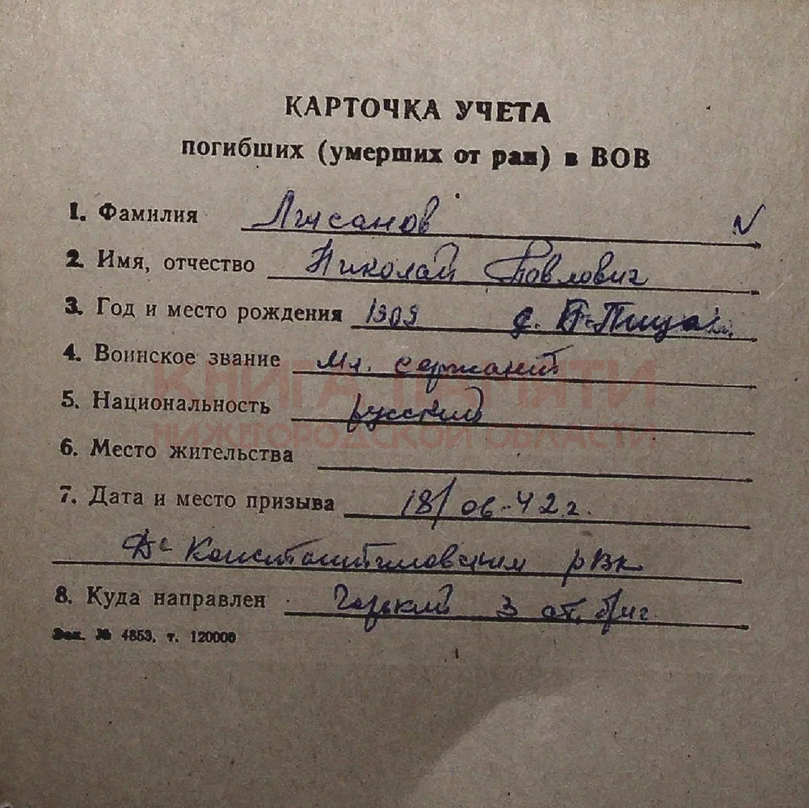 КАРТОЧКА УЧЕТА
погибших (умерших от ран) в ВОВ
1. Фамилия Лисанов
2. Имя, отчество Николай Павлович
3. Год и место рождения 1909
4. Воинское звание Мл. сержант
КНИГА ПАМЯТИ
5. Национальность русский
НИЖЕГОРОДСКОЙ ОБЛАСТИ
6. Место жительства
7. Дата и место призыва 18/06-42 г.
Д-Константиновским рвк
8. Куда направлен Горький 3 от. бриг.
Зак. № 4853, т. 120000